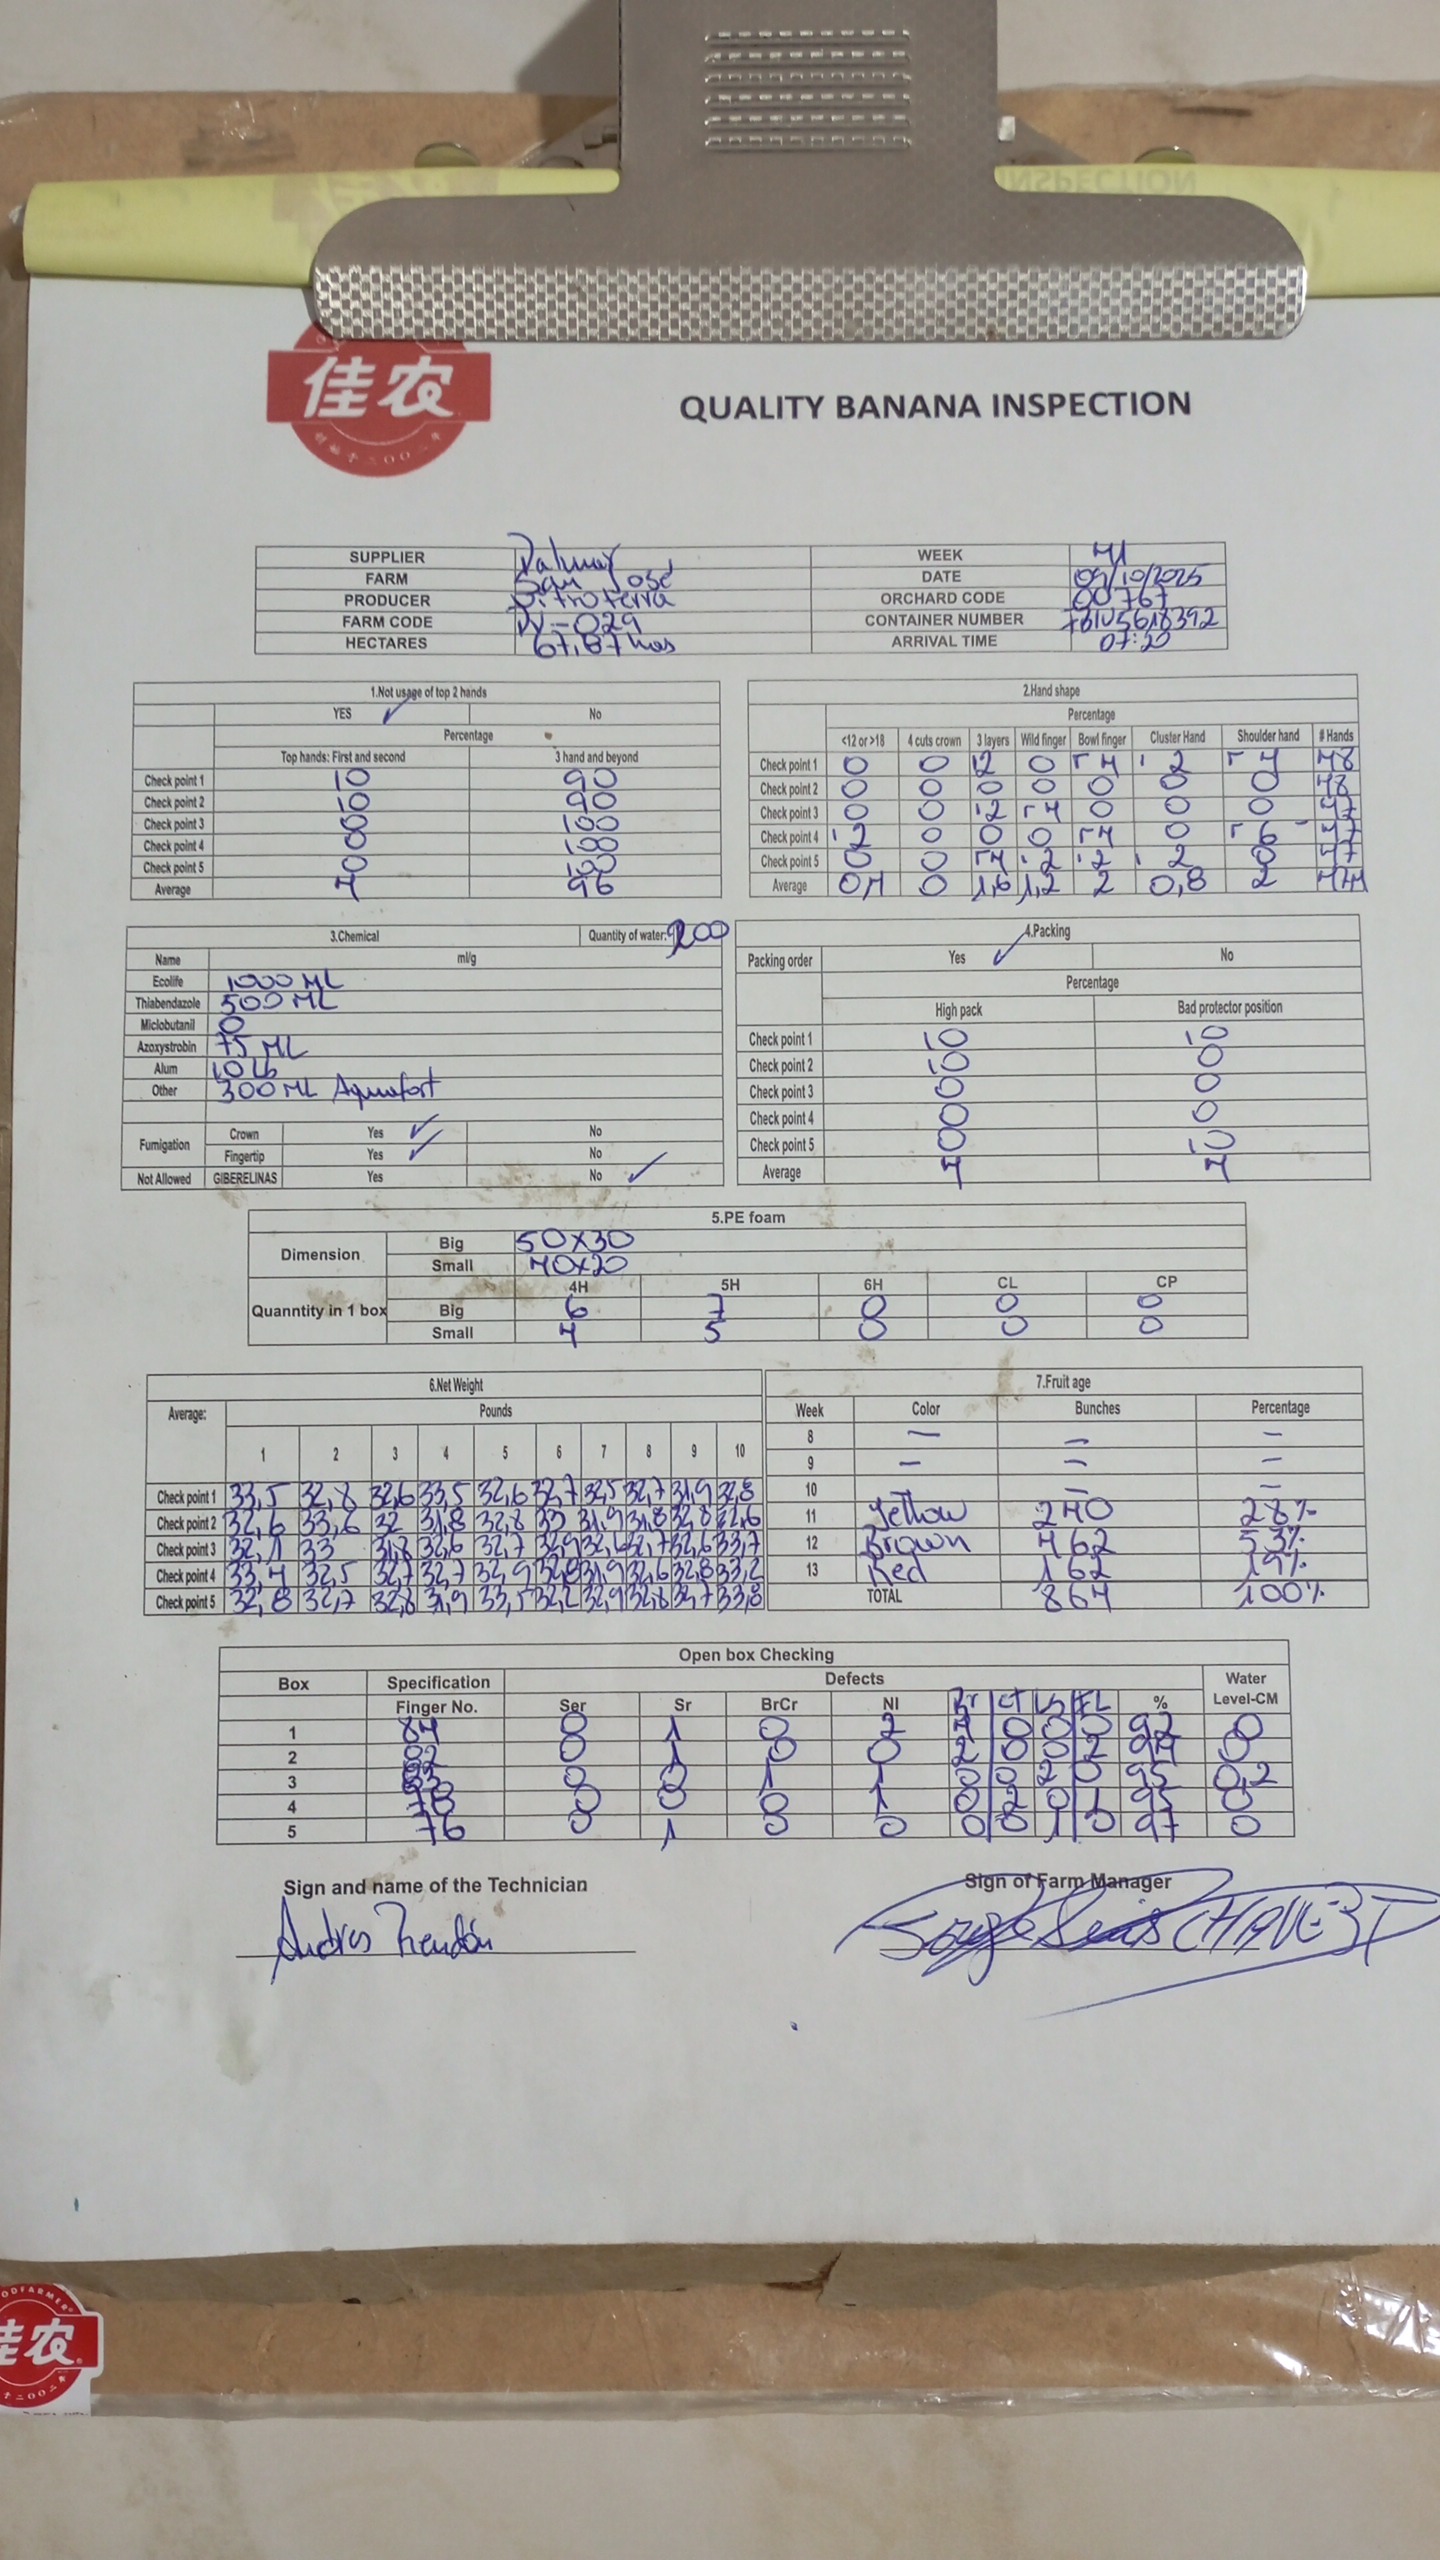 INSPECTION
佳农
QUALITY BANANA INSPECTION
SUPPLIER WEEK 41
FARM San José DATE 09/10/2025
PRODUCER Nitroterra ORCHARD CODE 00767
FARM CODE 029 CONTAINER NUMBER
HECTARES 67,87 has ARRIVAL TIME 07:20
1.Not usage of top 2 hands
YES ✓ No
Percentage
Top hands: First and second 3 hand and beyond
Check point 1 10 90
Check point 2 10 90
Check point 3 0 100
Check point 4 0 100
Check point 5 0 100
Average 4 96
2.Hand shape
Percentage
<12 or >18 4 cuts crown 3 layers Wild finger Bowl finger Cluster Hand Shoulder hand # Hands
Check point 1 0 0 2 0 4 2 4 48
Check point 2 0 0 0 0 0 0 0 48
Check point 3 0 0 2 4 0 0 0 47
Check point 4 2 0 0 0 4 0 6 47
Check point 5 0 0 4 2 2 2 0 47
Average 0,4 0 1,6 1,2 2 0,8 2 47,4
3.Chemical Quantity of water: 200
Name ml/g
Ecolife 1000 ML
Thiabendazole 500 ML
Miclobutanil 0
Azoxystrobin 75 ML
Alum 10 Lb
Other 300 ML Aquafort
Fumigation Crown Yes ✓ No
Fingertip Yes ✓ No
Not Allowed GIBERELINAS Yes No ✓
4.Packing
Packing order Yes ✓ No
Percentage
High pack Bad protector position
Check point 1 10 10
Check point 2 10 0
Check point 3 0 0
Check point 4 0 0
Check point 5 0 10
Average 4 4
5.PE foam
Dimension Big 50x30
Small 40x20
4H 5H 6H CL CP
Quanntity in 1 box Big 6 7 0 0 0
Small 4 5 0 0 0
6.Net Weight
Average: Pounds
1 2 3 4 5 6 7 8 9 10
Check point 1 33,5 32,8 32,6 33,5 32,6 32,7 32,5 32,7 31,9 32,8
Check point 2 32,6 33,6 32 31,8 32,8 33 31,9 31,8 32,8 32,6
Check point 3 32,1 33 31,8 32,6 32,7 32,9 32,6 32,7 32,6 33,7
Check point 4 33,4 32,5 32,7 32,7 32,9 32,8 31,9 32,6 32,8 33,2
Check point 5 32,8 32,7 32,8 31,9 33,5 32,2 32,9 32,8 32,7 33,8
7.Fruit age
Week Color Bunches Percentage
8 — — —
9 — — —
10 — —
11 Yellow 240 28%
12 Brown 462 53%
13 Red 162 19%
TOTAL 864 100%
Open box Checking
Box Specification Defects Water
Finger No. Ser Sr BrCr NI Br CT LB FL % Level-CM
1 84 0 1 0 2 4 0 0 0 92 0
2 82 0 1 0 0 2 0 0 2 94 0
3 83 0 0 1 1 0 0 2 0 95 0,2
4 78 0 0 0 1 0 2 0 1 95 0
5 76 0 1 0 0 0 0 1 0 97 0
Sign and name of the Technician
Sign of Farm Manager
Andres Rendón
佳农